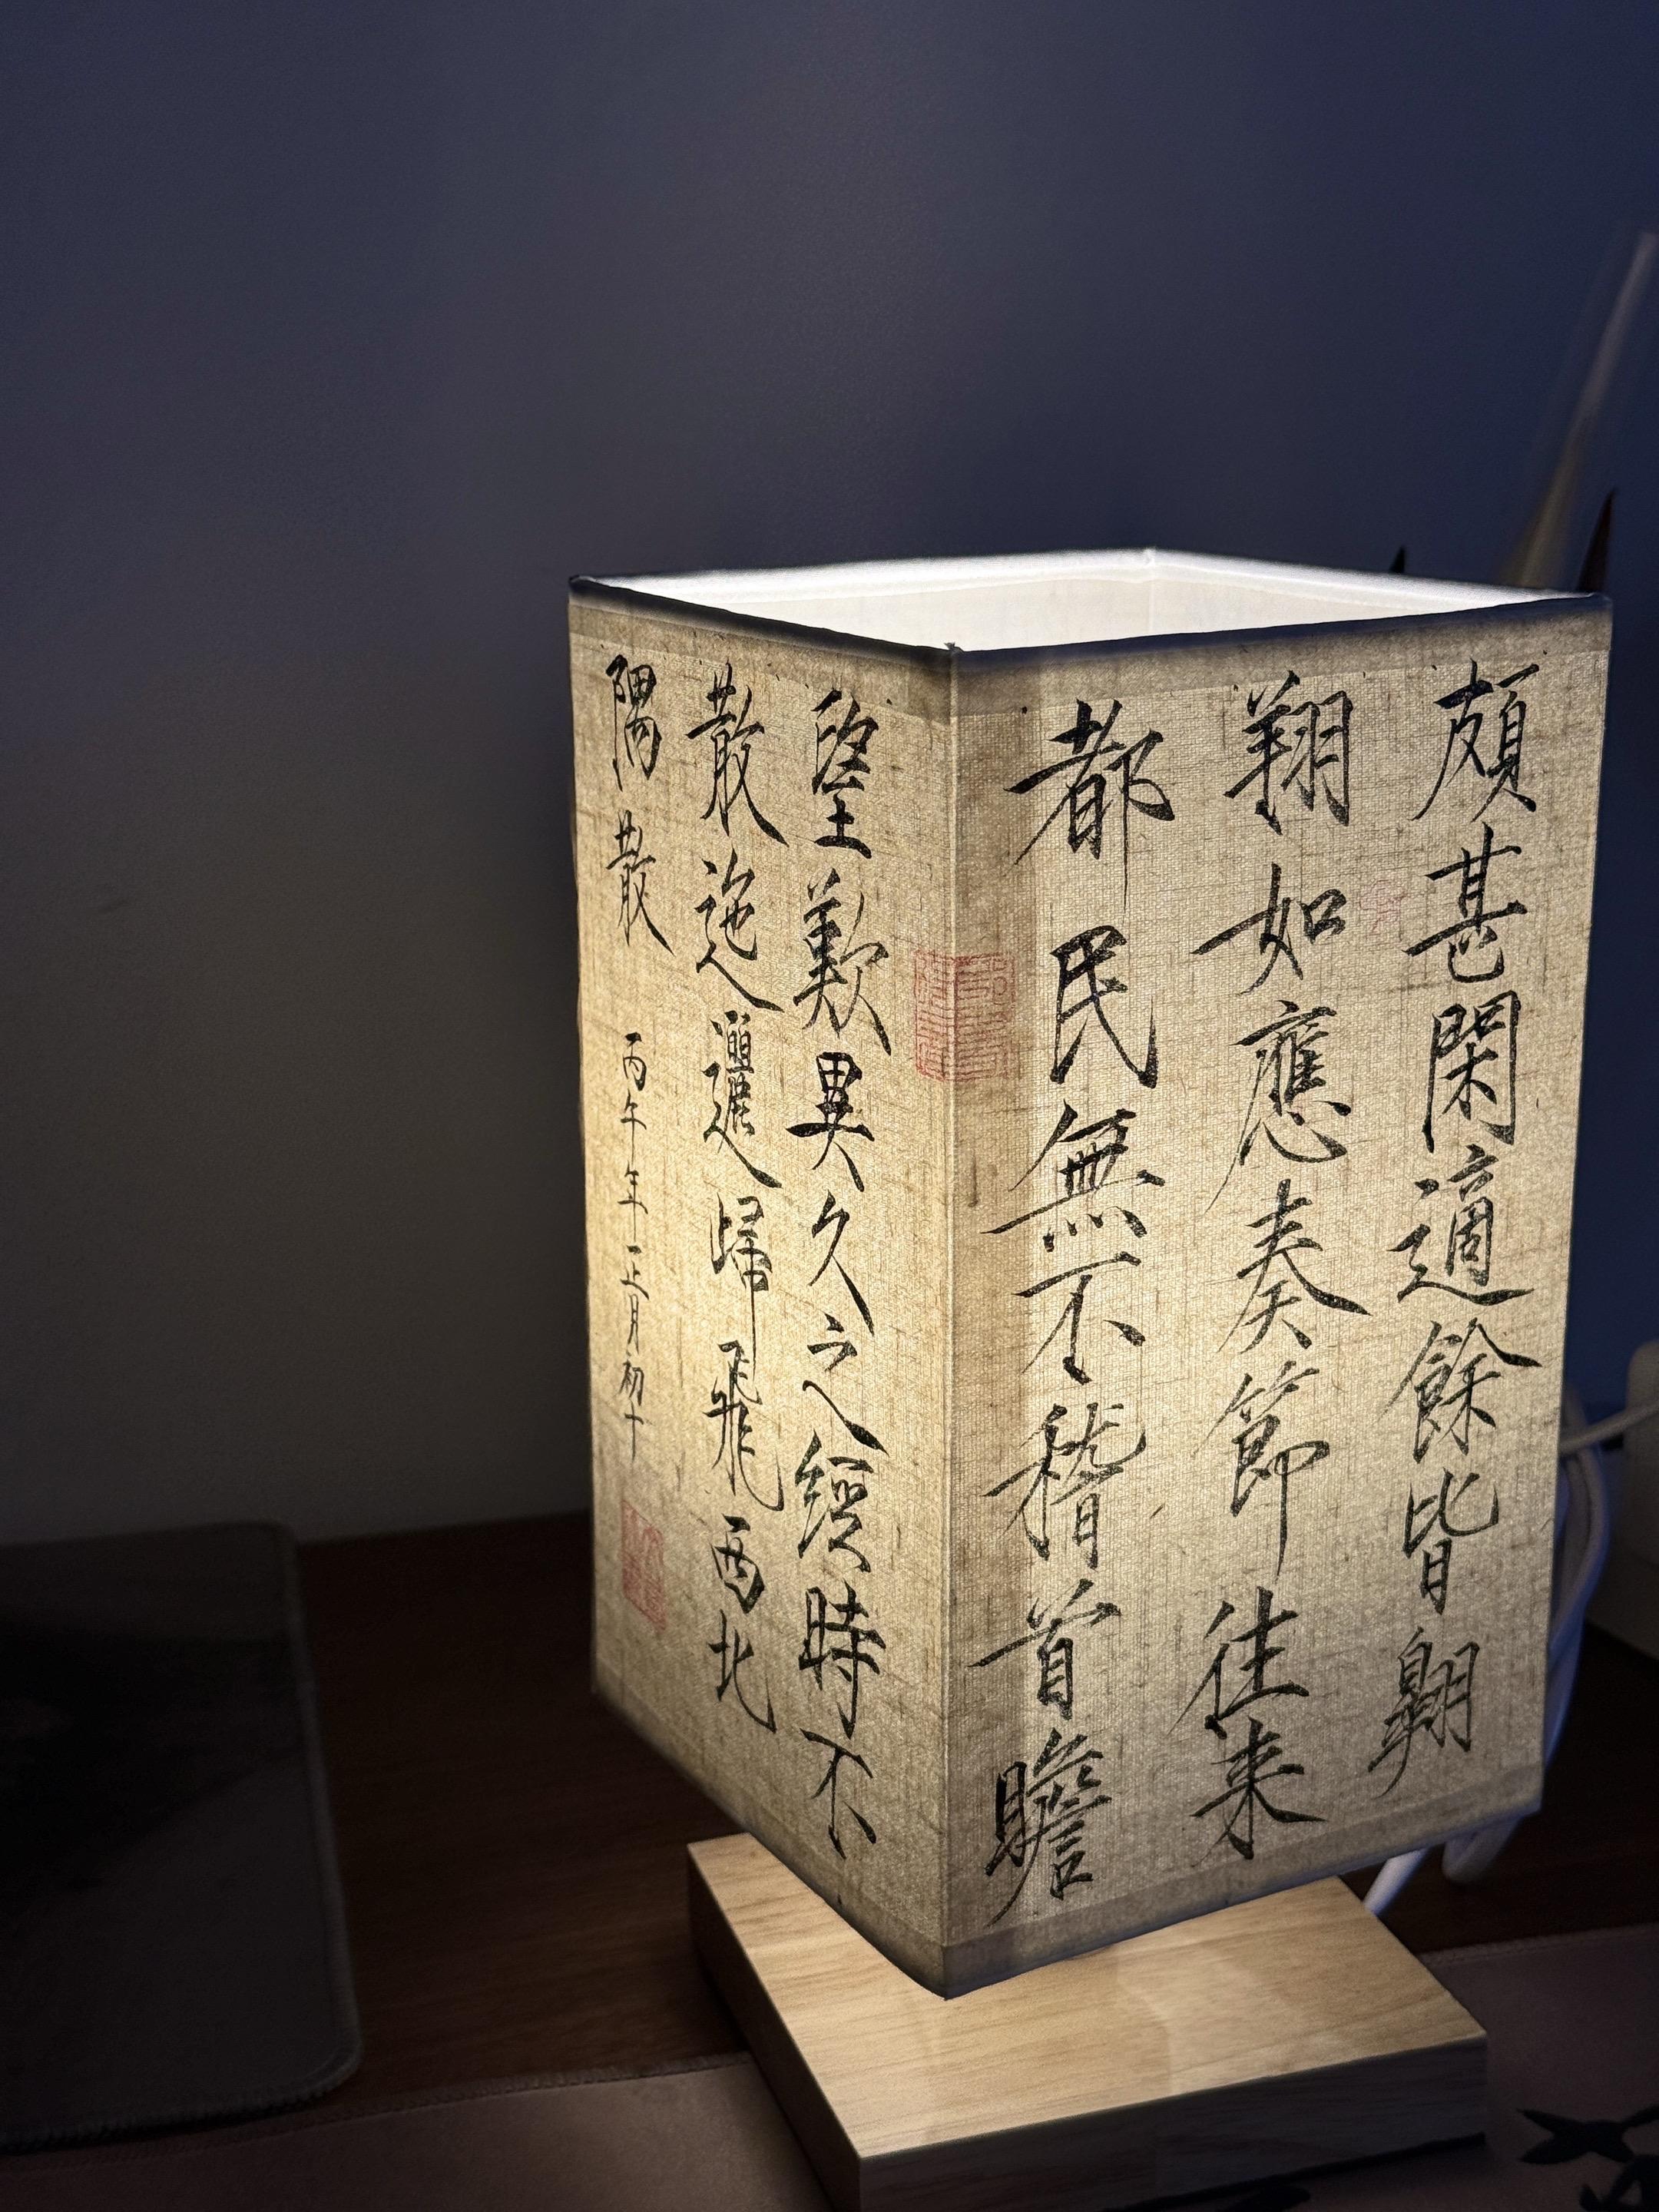 頗甚閑適餘皆翱
翔如應奏節往来
都民無不稽首瞻
望歎異久之經時不
散迤邐歸飛西北
隅散
丙午年正月初十